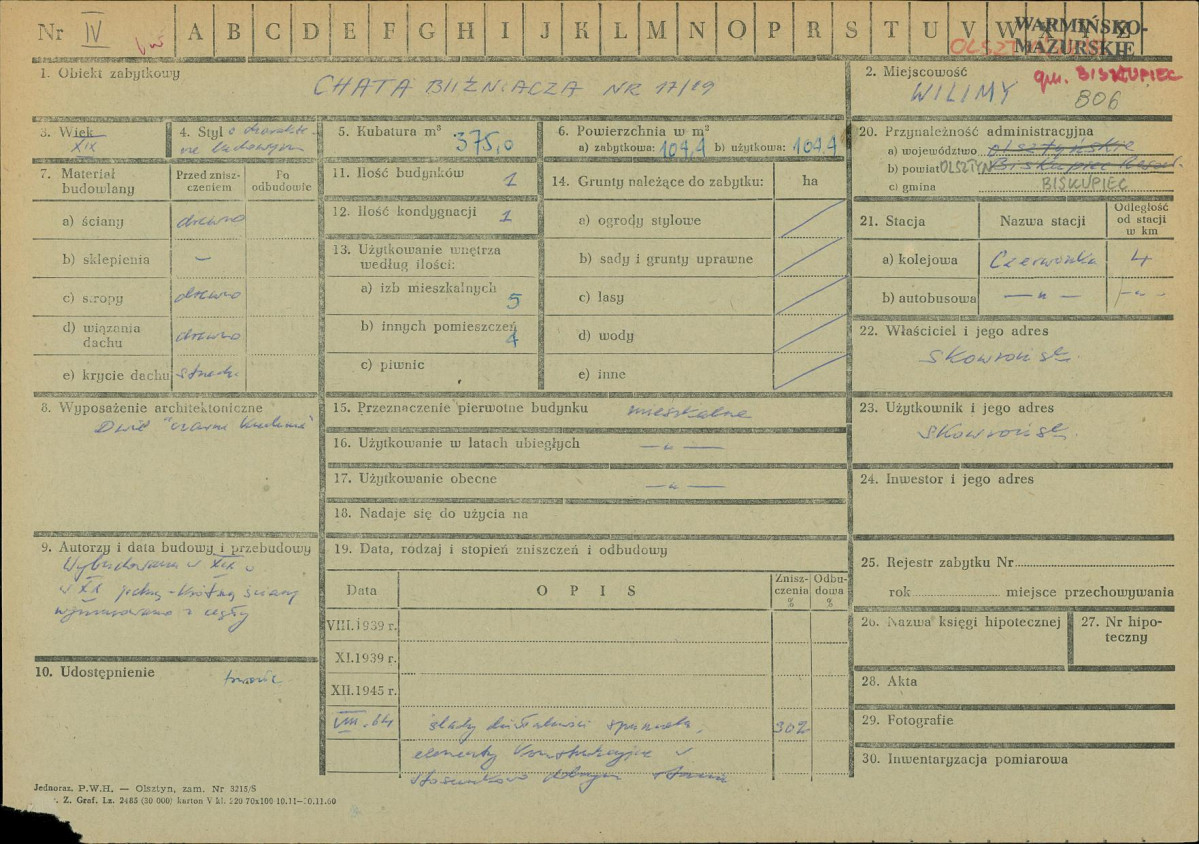 Nr IV A B C D E F G H I J K L M N O P R S T U V W
WARMIŃSKO-
MAZURSKIE
1. Obiekt zabytkowy
CHATA BLIŹNIACZA NR 17/19
2. Miejscowość
gm. BISKUPIEC
WILIMY BO6
3. Wiek
XIX
4. Styl o charakte-
rze ludowym
5. Kubatura m³ 375,0
6. Powierzchnia w m²
a) zabytkowa: 104,4 b) użytkowa: 104,4
7. Materiał budowlany
Przed znisz-czeniem
Po odbudowie
a) ściany drewno
b) sklepienia —
c) stropy drewno
d) wiązania dachu drewno
e) krycie dachu
8. Wyposażenie architektoniczne
"czarna kuchnia"
9. Autorzy i data budowy i przebudowy
Wybudowana w XIX w
w XX jedną krótszą ścianę
wymurowano z cegły
10. Udostępnienie
11. Ilość budynków 1
12. Ilość kondygnacji 1
13. Użytkowanie wnętrza
według ilości:
a) izb mieszkalnych 5
b) innych pomieszczeń 4
c) piwnic
14. Grunty należące do zabytku: ha
a) ogrody stylowe
b) sady i grunty uprawne
c) lasy
d) wody
e) inne
15. Przeznaczenie pierwotne budynku mieszkalne
16. Użytkowanie w latach ubiegłych — „ —
17. Użytkowanie obecne — „ —
18. Nadaje się do użycia na
19. Data, rodzaj i stopień zniszczeń i odbudowy
Data O P I S Znisz-czenia % Odbu-dowa %
VIII.1939 r.
XI.1939 r.
XII.1945 r.
VIII.64 ślady działalności 30%
elementy konstrukcyjne w
stosunkowo dobrym stanie
20. Przynależność administracyjna
a) województwo olsztyńskie
b) powiat OLSZTYN Biskupiec Resz.
c) gmina BISKUPIEC
21. Stacja Nazwa stacji Odległość od stacji w km
a) kolejowa Czerwonka 4
b) autobusowa — „ — — „ —
22. Właściciel i jego adres
Skowroński
23. Użytkownik i jego adres
Skowroński
24. Inwestor i jego adres
25. Rejestr zabytku Nr
rok miejsce przechowywania
26. Nazwa księgi hipotecznej
27. Nr hipo-teczny
28. Akta
29. Fotografie
30. Inwentaryzacja pomiarowa
Jednoraz. P.W.H. — Olsztyn, zam. Nr 3215/S
Z. Graf. Lz. 2485 (30 000) karton V kl. 220 70x100 10.11—30.11.60